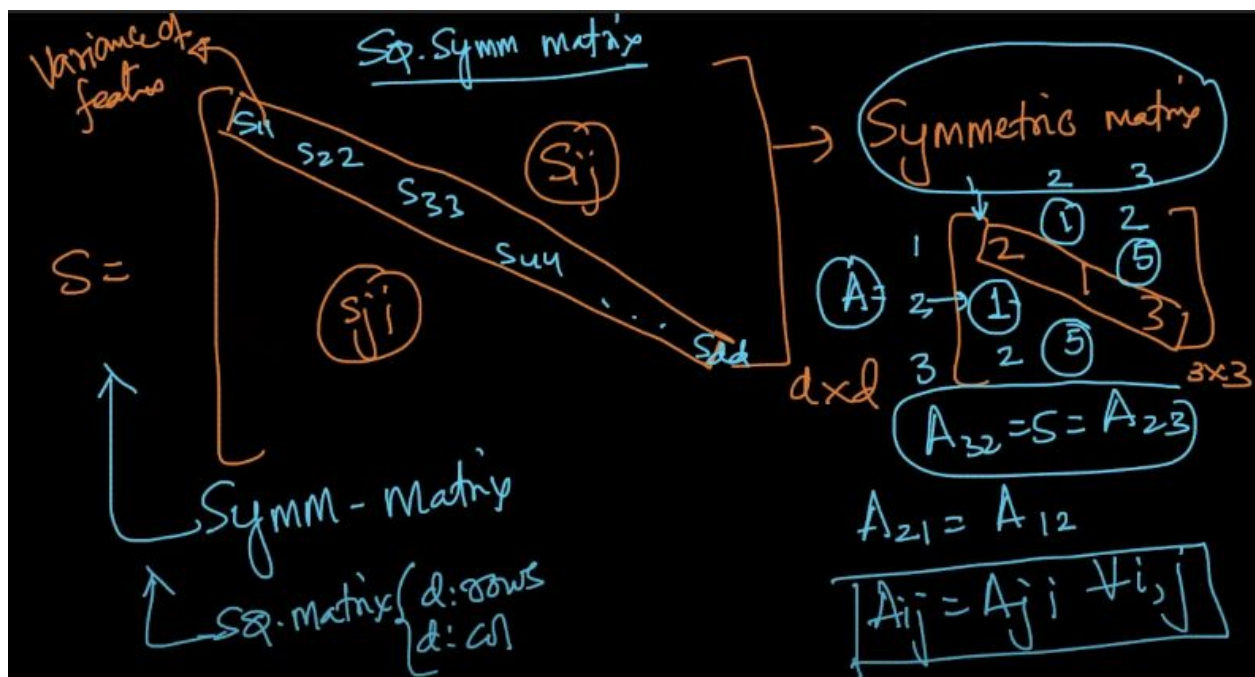 Variance of
featres
Sq. Symm matrix
S11
S22
S33
S44
. . .
Sdd
Sij
sji
S=
d×d
Symm - Matrix
SQ. matrix { d: rows
d: col
Symmetric matrix
1 2 3
A=
1 2 1 2
2 1 1 5
3 2 5 3
3×3
A32 = 5 = A23
A21 = A12
Aij = Aji ∀i,j